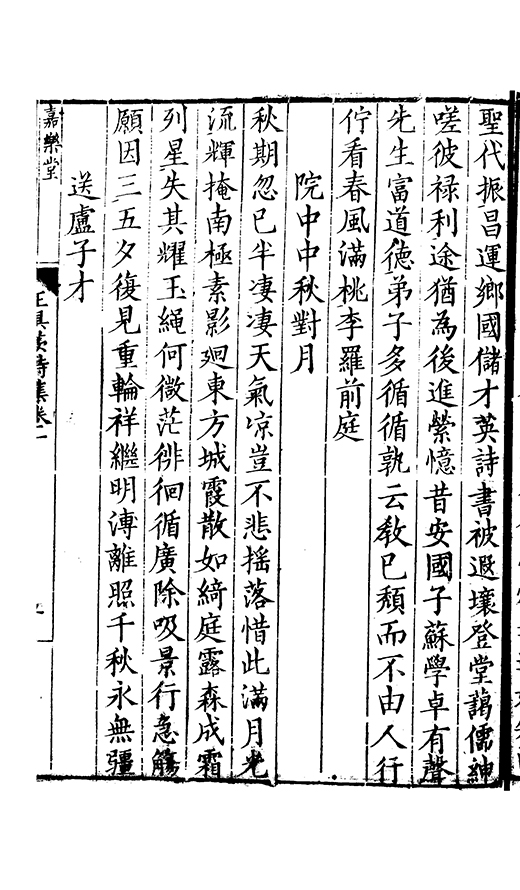 聖代振昌運鄉國儲才英詩書被遐壤登堂藹儒紳
嗟彼祿利途猶為後進縈憶昔安國子蘇學卓有聲
先生富道德弟子多循循孰云教已頽而不由人行
佇看春風滿桃李羅前庭
院中中秋對月
秋期忽已半淒淒天氣凉豈不悲摇落惜此滿月光
流輝掩南極素影廻東方城霞散如綺庭露森成霜
列星失其耀玉繩何微茫徘徊循廣除吸景行急觴
願因三五夕復見重輪祥繼明溥離照千秋永無疆
送盧子才
嘉樂堂
詩集卷一